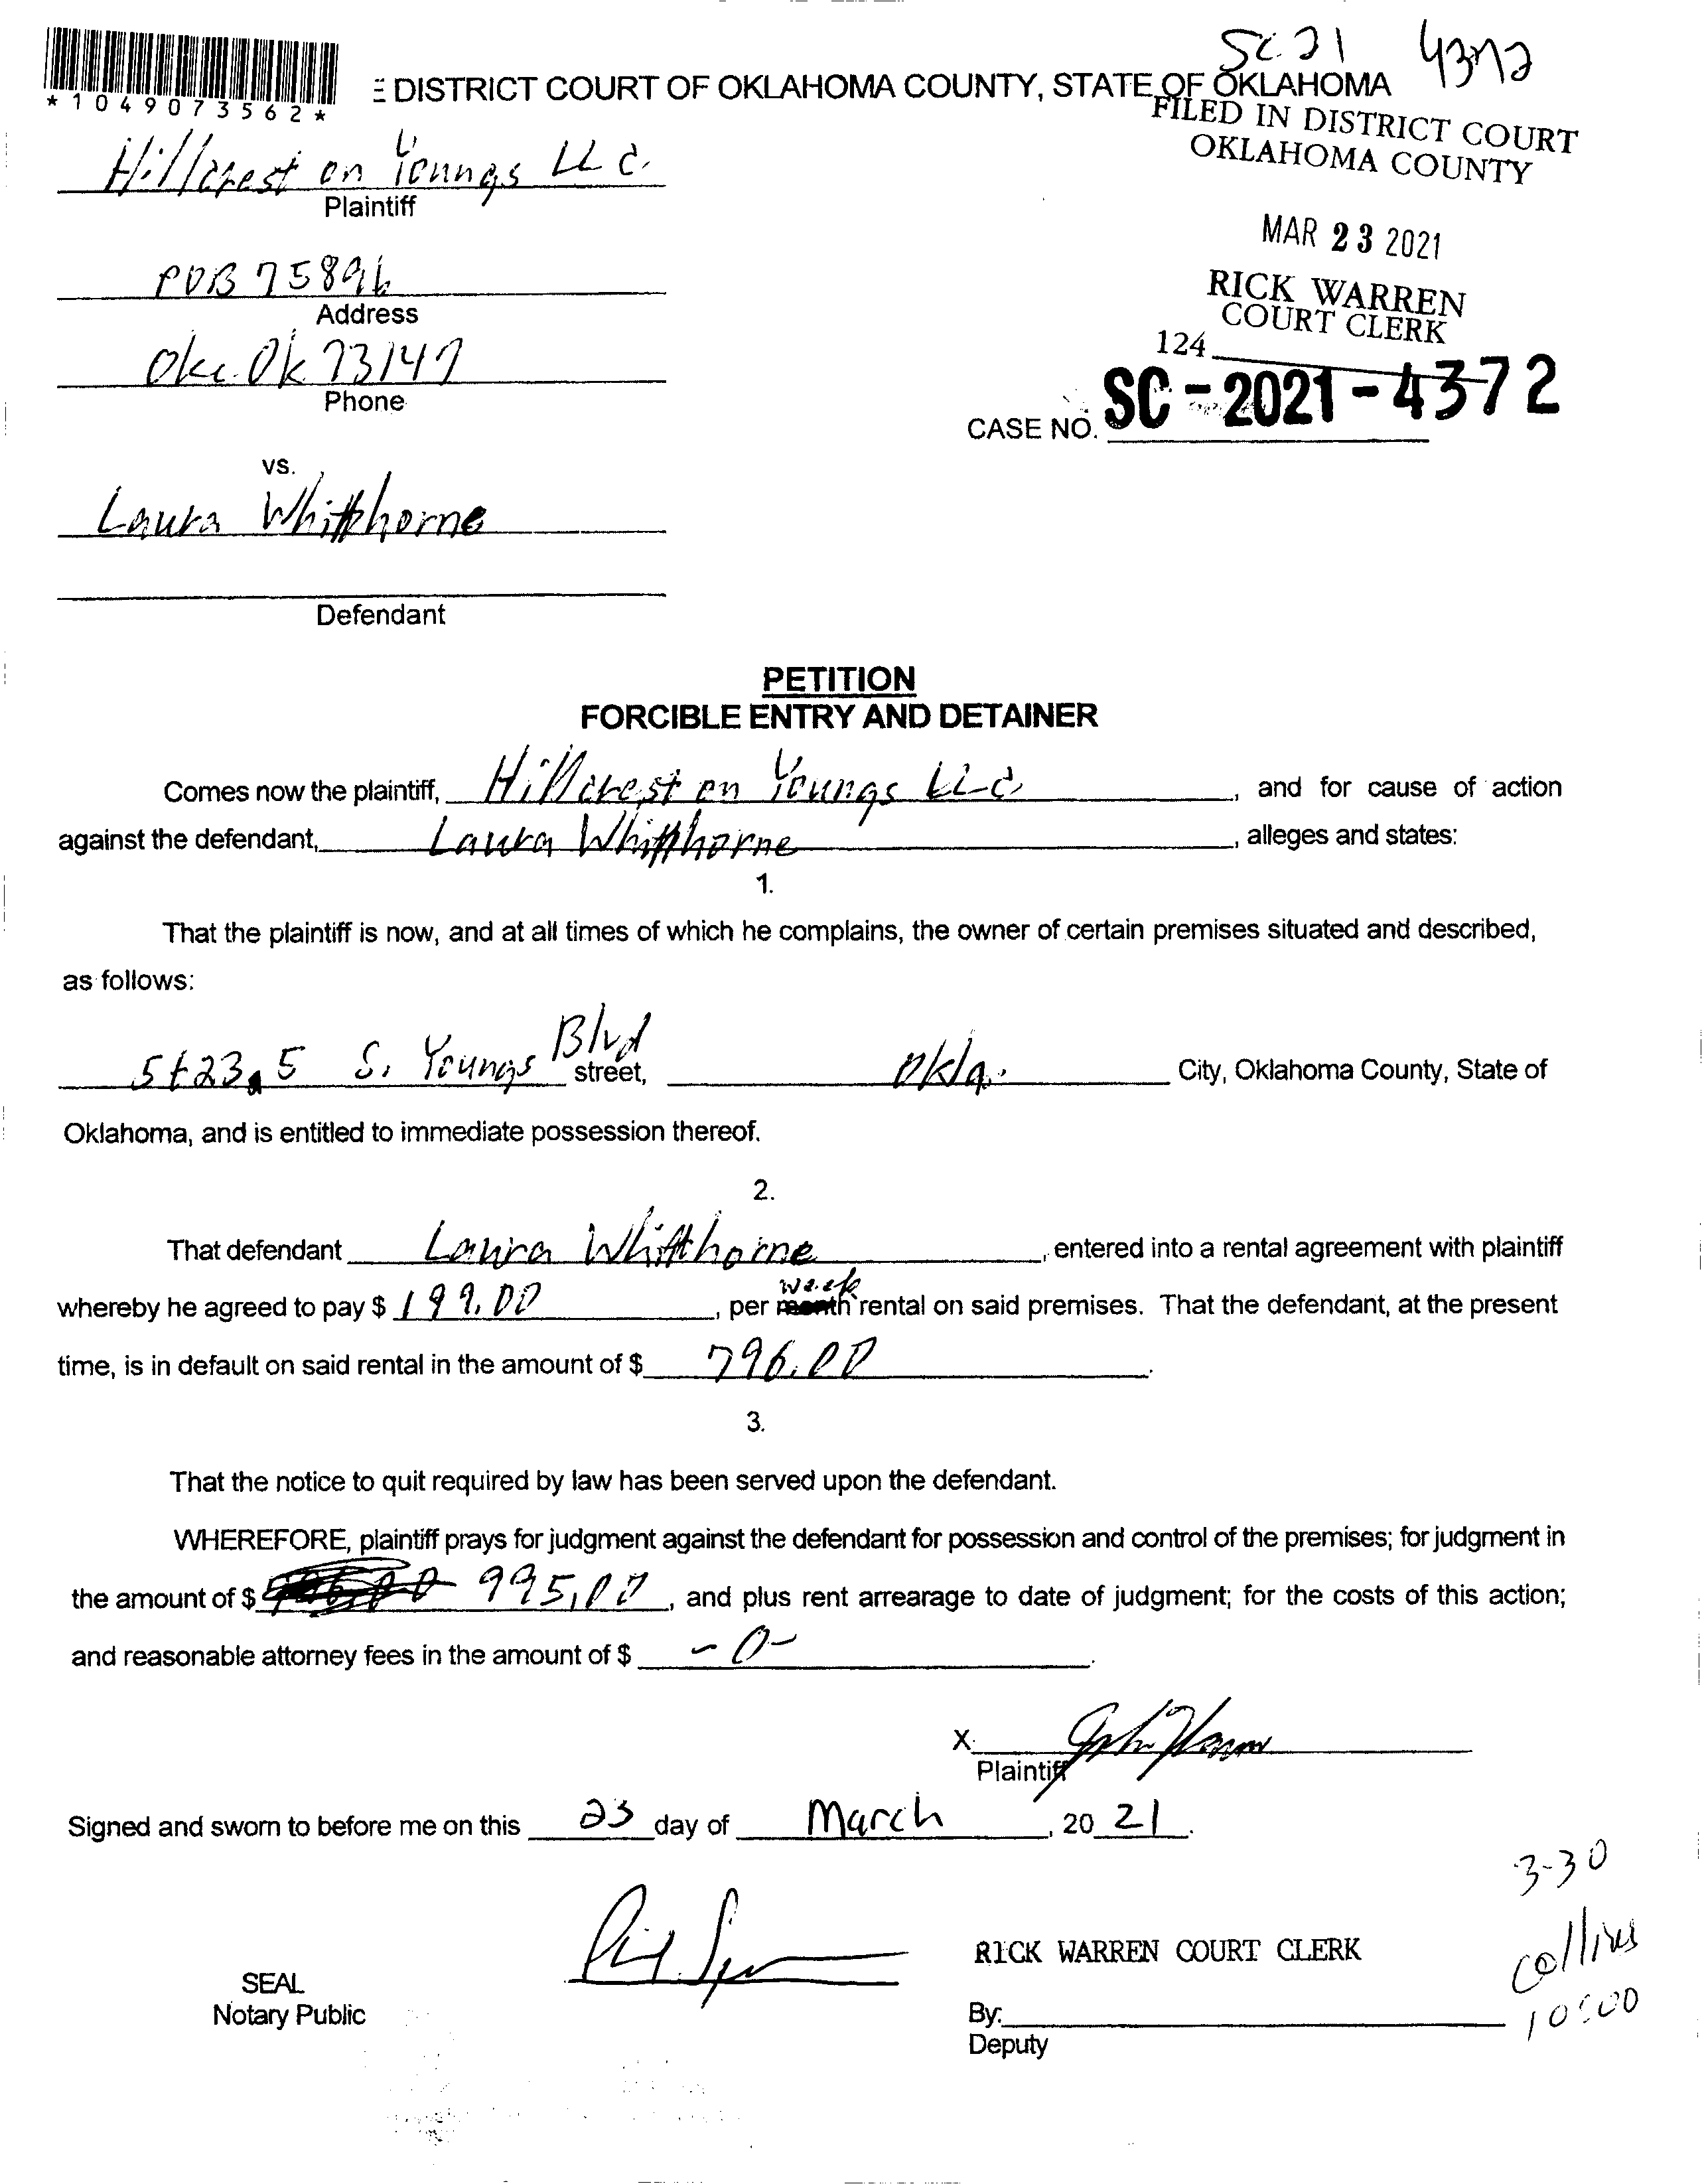 SC 21 4372
*1049073562*
E DISTRICT COURT OF OKLAHOMA COUNTY, STATE OF OKLAHOMA
FILED IN DISTRICT COURT
OKLAHOMA COUNTY
Hillcrest on Youngs LLC.
Plaintiff
MAR 23 2021
POB 75896
Address
RICK WARREN
COURT CLERK
124
Okc. Ok 73147
Phone
CASE NO. SC-2021-4372
vs.
Laura Whitthorne
Defendant
PETITION
FORCIBLE ENTRY AND DETAINER
Comes now the plaintiff, Hillcrest on Youngs LLC, and for cause of action
against the defendant, Laura Whitthorne, alleges and states:
1.
That the plaintiff is now, and at all times of which he complains, the owner of certain premises situated and described,
as follows:
S. Youngs Blvd street, Okla. City, Oklahoma County, State of
Oklahoma, and is entitled to immediate possession thereof.
2.
That defendant Laura Whitthorne, entered into a rental agreement with plaintiff
week
whereby he agreed to pay $ 199.00, per month rental on said premises. That the defendant, at the present
time, is in default on said rental in the amount of $ 796.00.
3.
That the notice to quit required by law has been served upon the defendant.
WHEREFORE, plaintiff prays for judgment against the defendant for possession and control of the premises; for judgment in
the amount of $ 995.00, and plus rent arrearage to date of judgment; for the costs of this action;
and reasonable attorney fees in the amount of $ -0-.
X
Plaintiff
Signed and sworn to before me on this 23 day of March, 20 21.
3-30
RICK WARREN COURT CLERK
Collins
SEAL
Notary Public
By:
10:00
Deputy